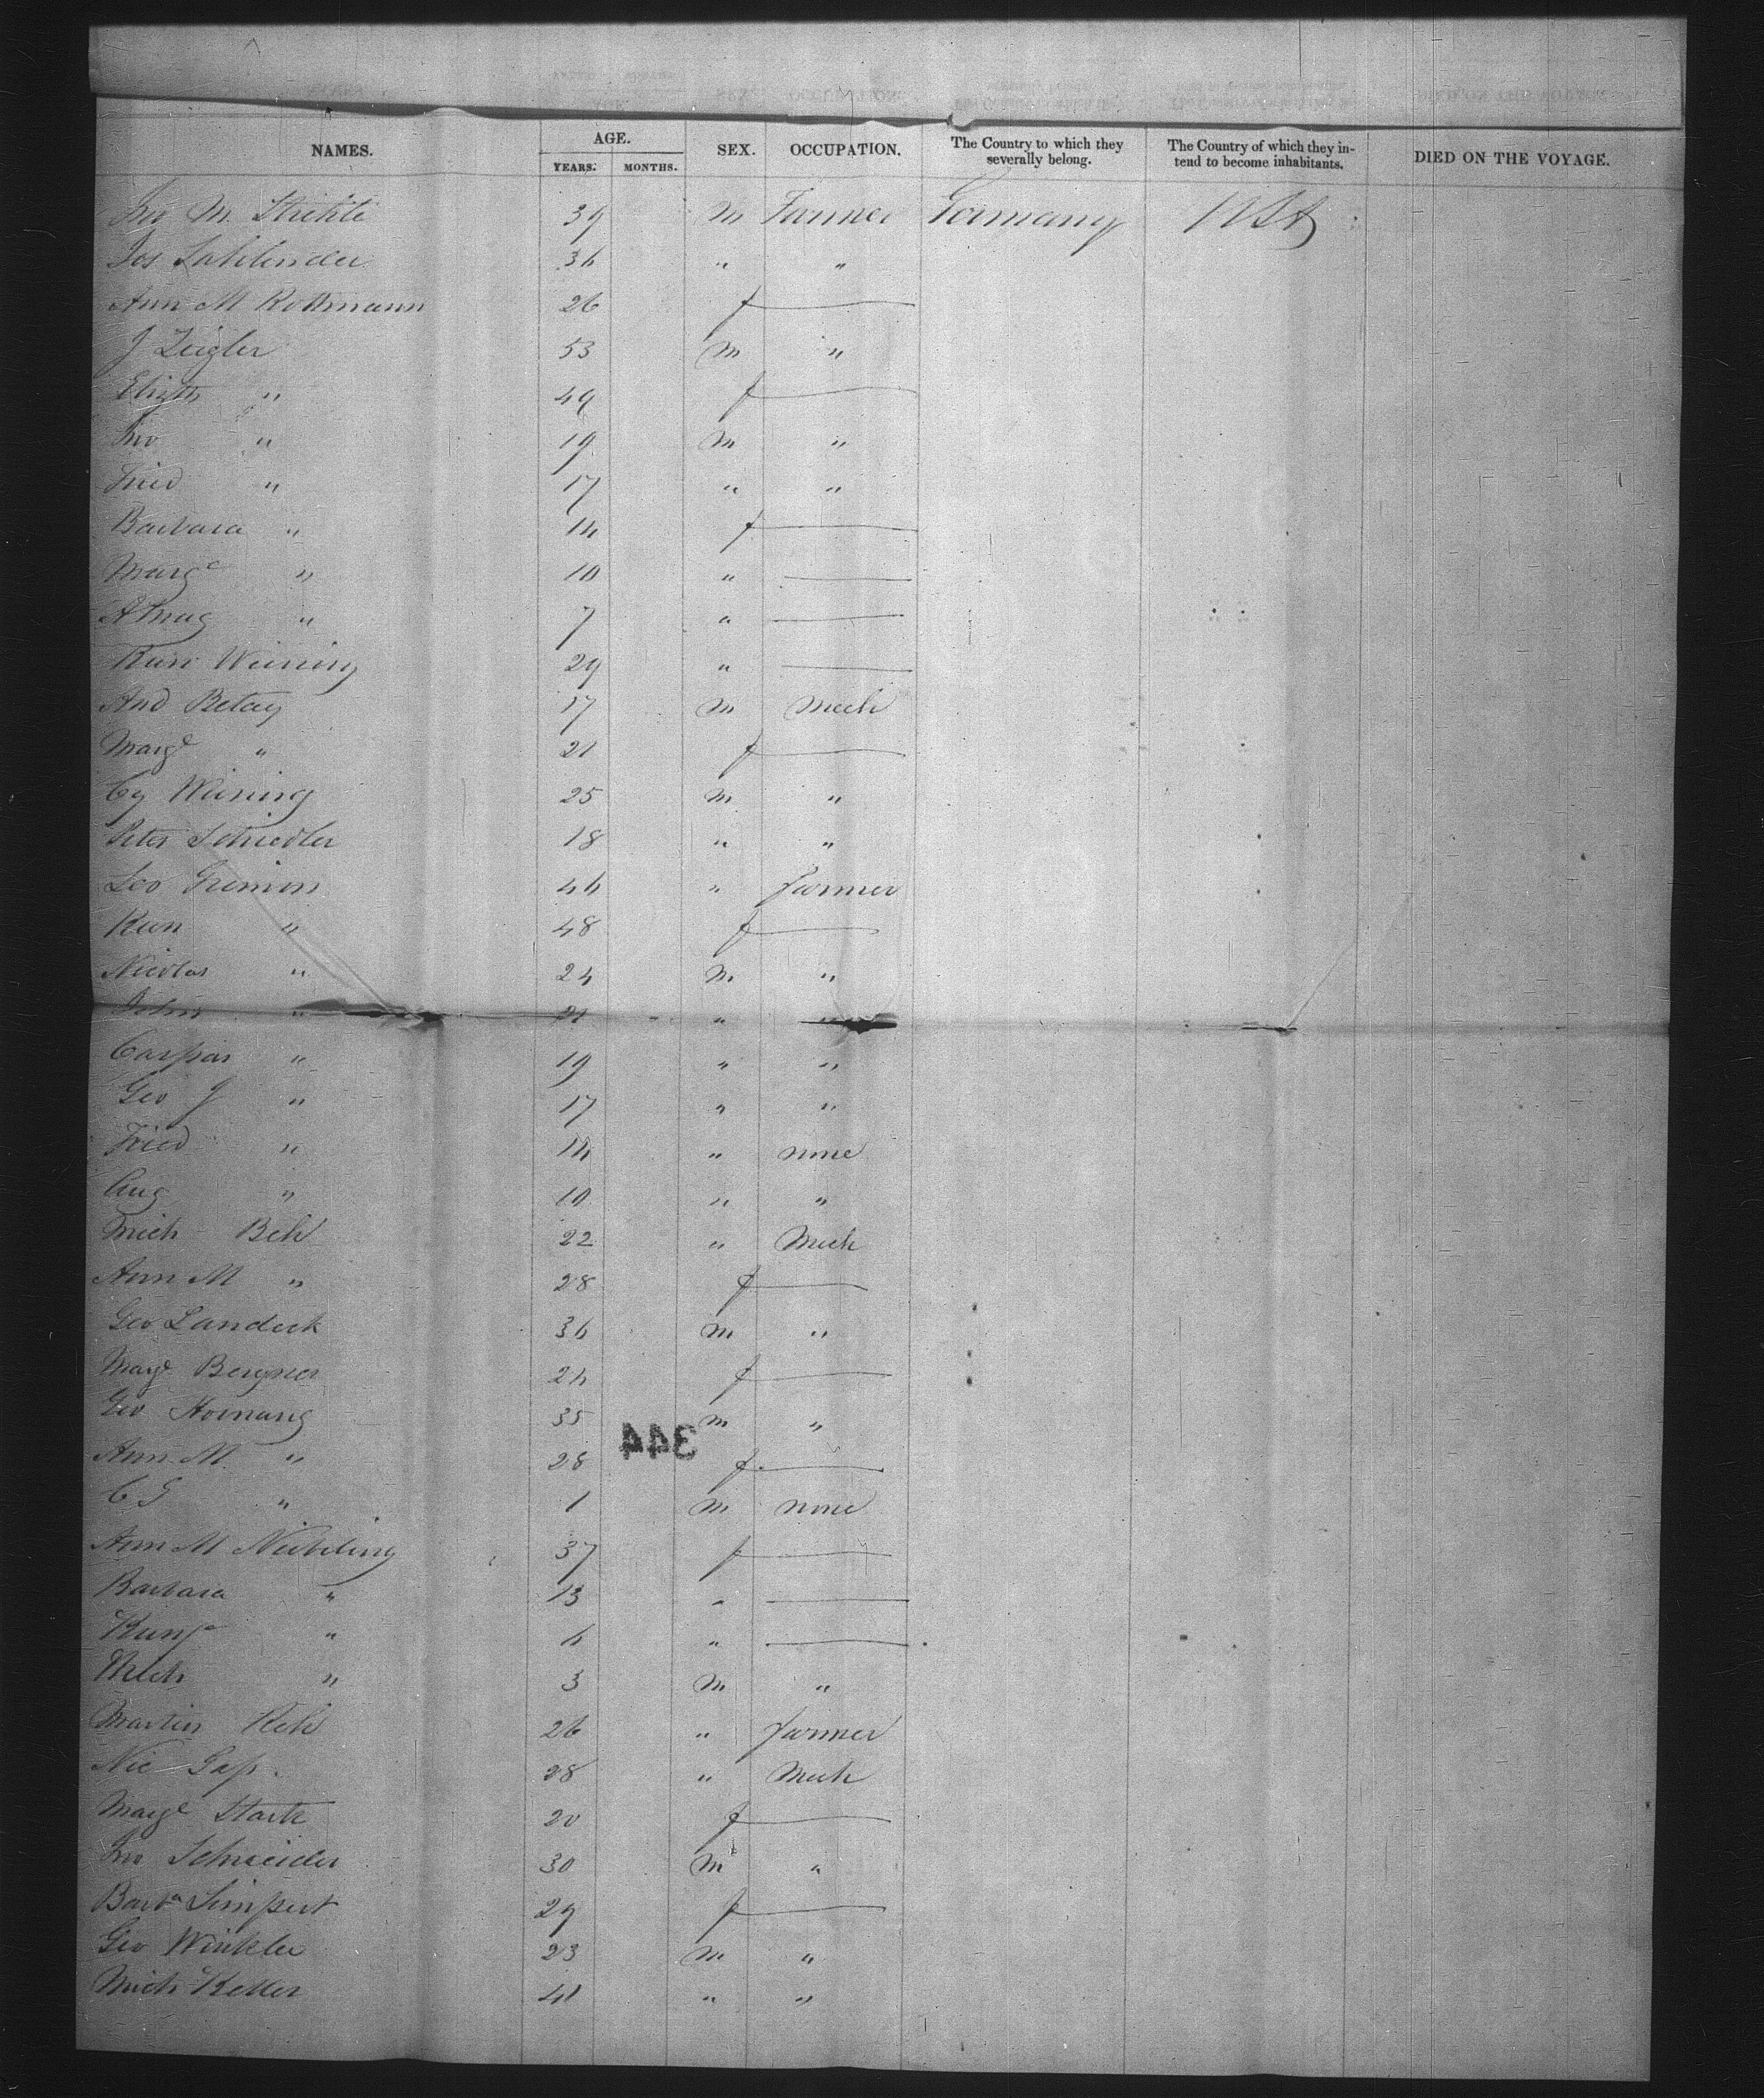 NAMES. AGE. YEARS. MONTHS. SEX. OCCUPATION. The Country to which they severally belong. The Country of which they intend to become inhabitants. DIED ON THE VOYAGE.
Jno M. Striehte 39 M Farmer Germany USA
Jos Sahlender 36 " "
Ann M Rottmann 26 f
J Zeigler 53 M "
Elizth " 49 f
Jno " 19 M "
Fried " 17 " "
Barbara " 14 f
Marge " 10 "
" 7 "
Kun Weining 29 "
And Betag 17 M Mech
Marge " 21 f
Cy Weining 25 M "
Peter Schiedler 18 " "
Leo Grimm 44 " farmer
Kun " 48 f
Nicolas " 24 M "
John " 21 " "
Caspar " 19 " "
Geo J " 17 " "
Fried " 14 " none
Aug " 10 " "
Mich Beh 22 " Mech
Ann M " 28 f
Geo Landeck 36 M "
Marge Bergner 24 f
Geo Hornung 35 M "
344
Ann M. " 28 f.
C G " 1 M none
Ann M Niebling 37 f
Barbara " 13 "
" 4 "
" 3 M "
Martin Reh 26 " farmer
Nic Gass. 28 " Mech
Marge Stark 20 f
Jno Schneider 30 M "
Barba Limpert 29 f
Geo Winkler 23 M "
Mich Keller 41 " "